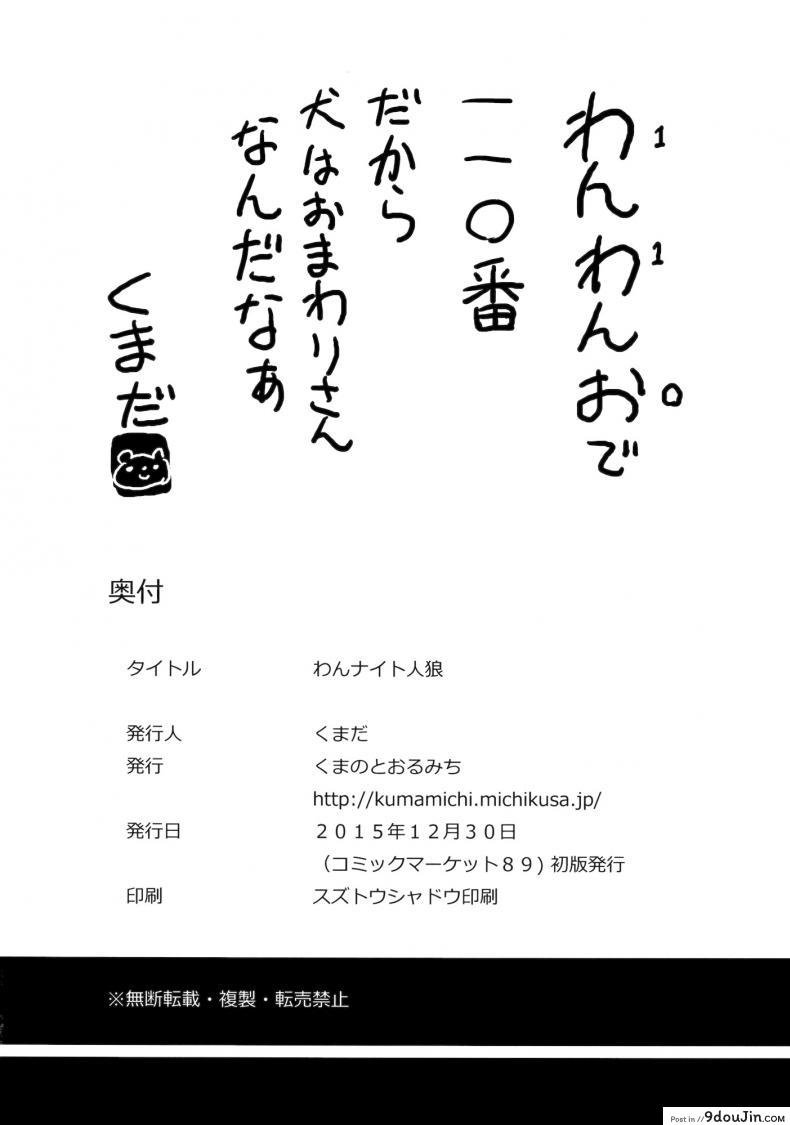 わんわんおで
1 1 0
一一〇番
だから
犬はおまわりさん
なんだなぁ
くまだ
奥付
タイトル わんナイト人狼
発行人 くまだ
発行 くまのとおるみち
http://kumamichi.michikusa.jp/
発行日 ２０１５年１２月３０日
（コミックマーケット８９) 初版発行
印刷 スズトウシャドウ印刷
※無断転載・複製・転売禁止
Post in // 9douJin.com